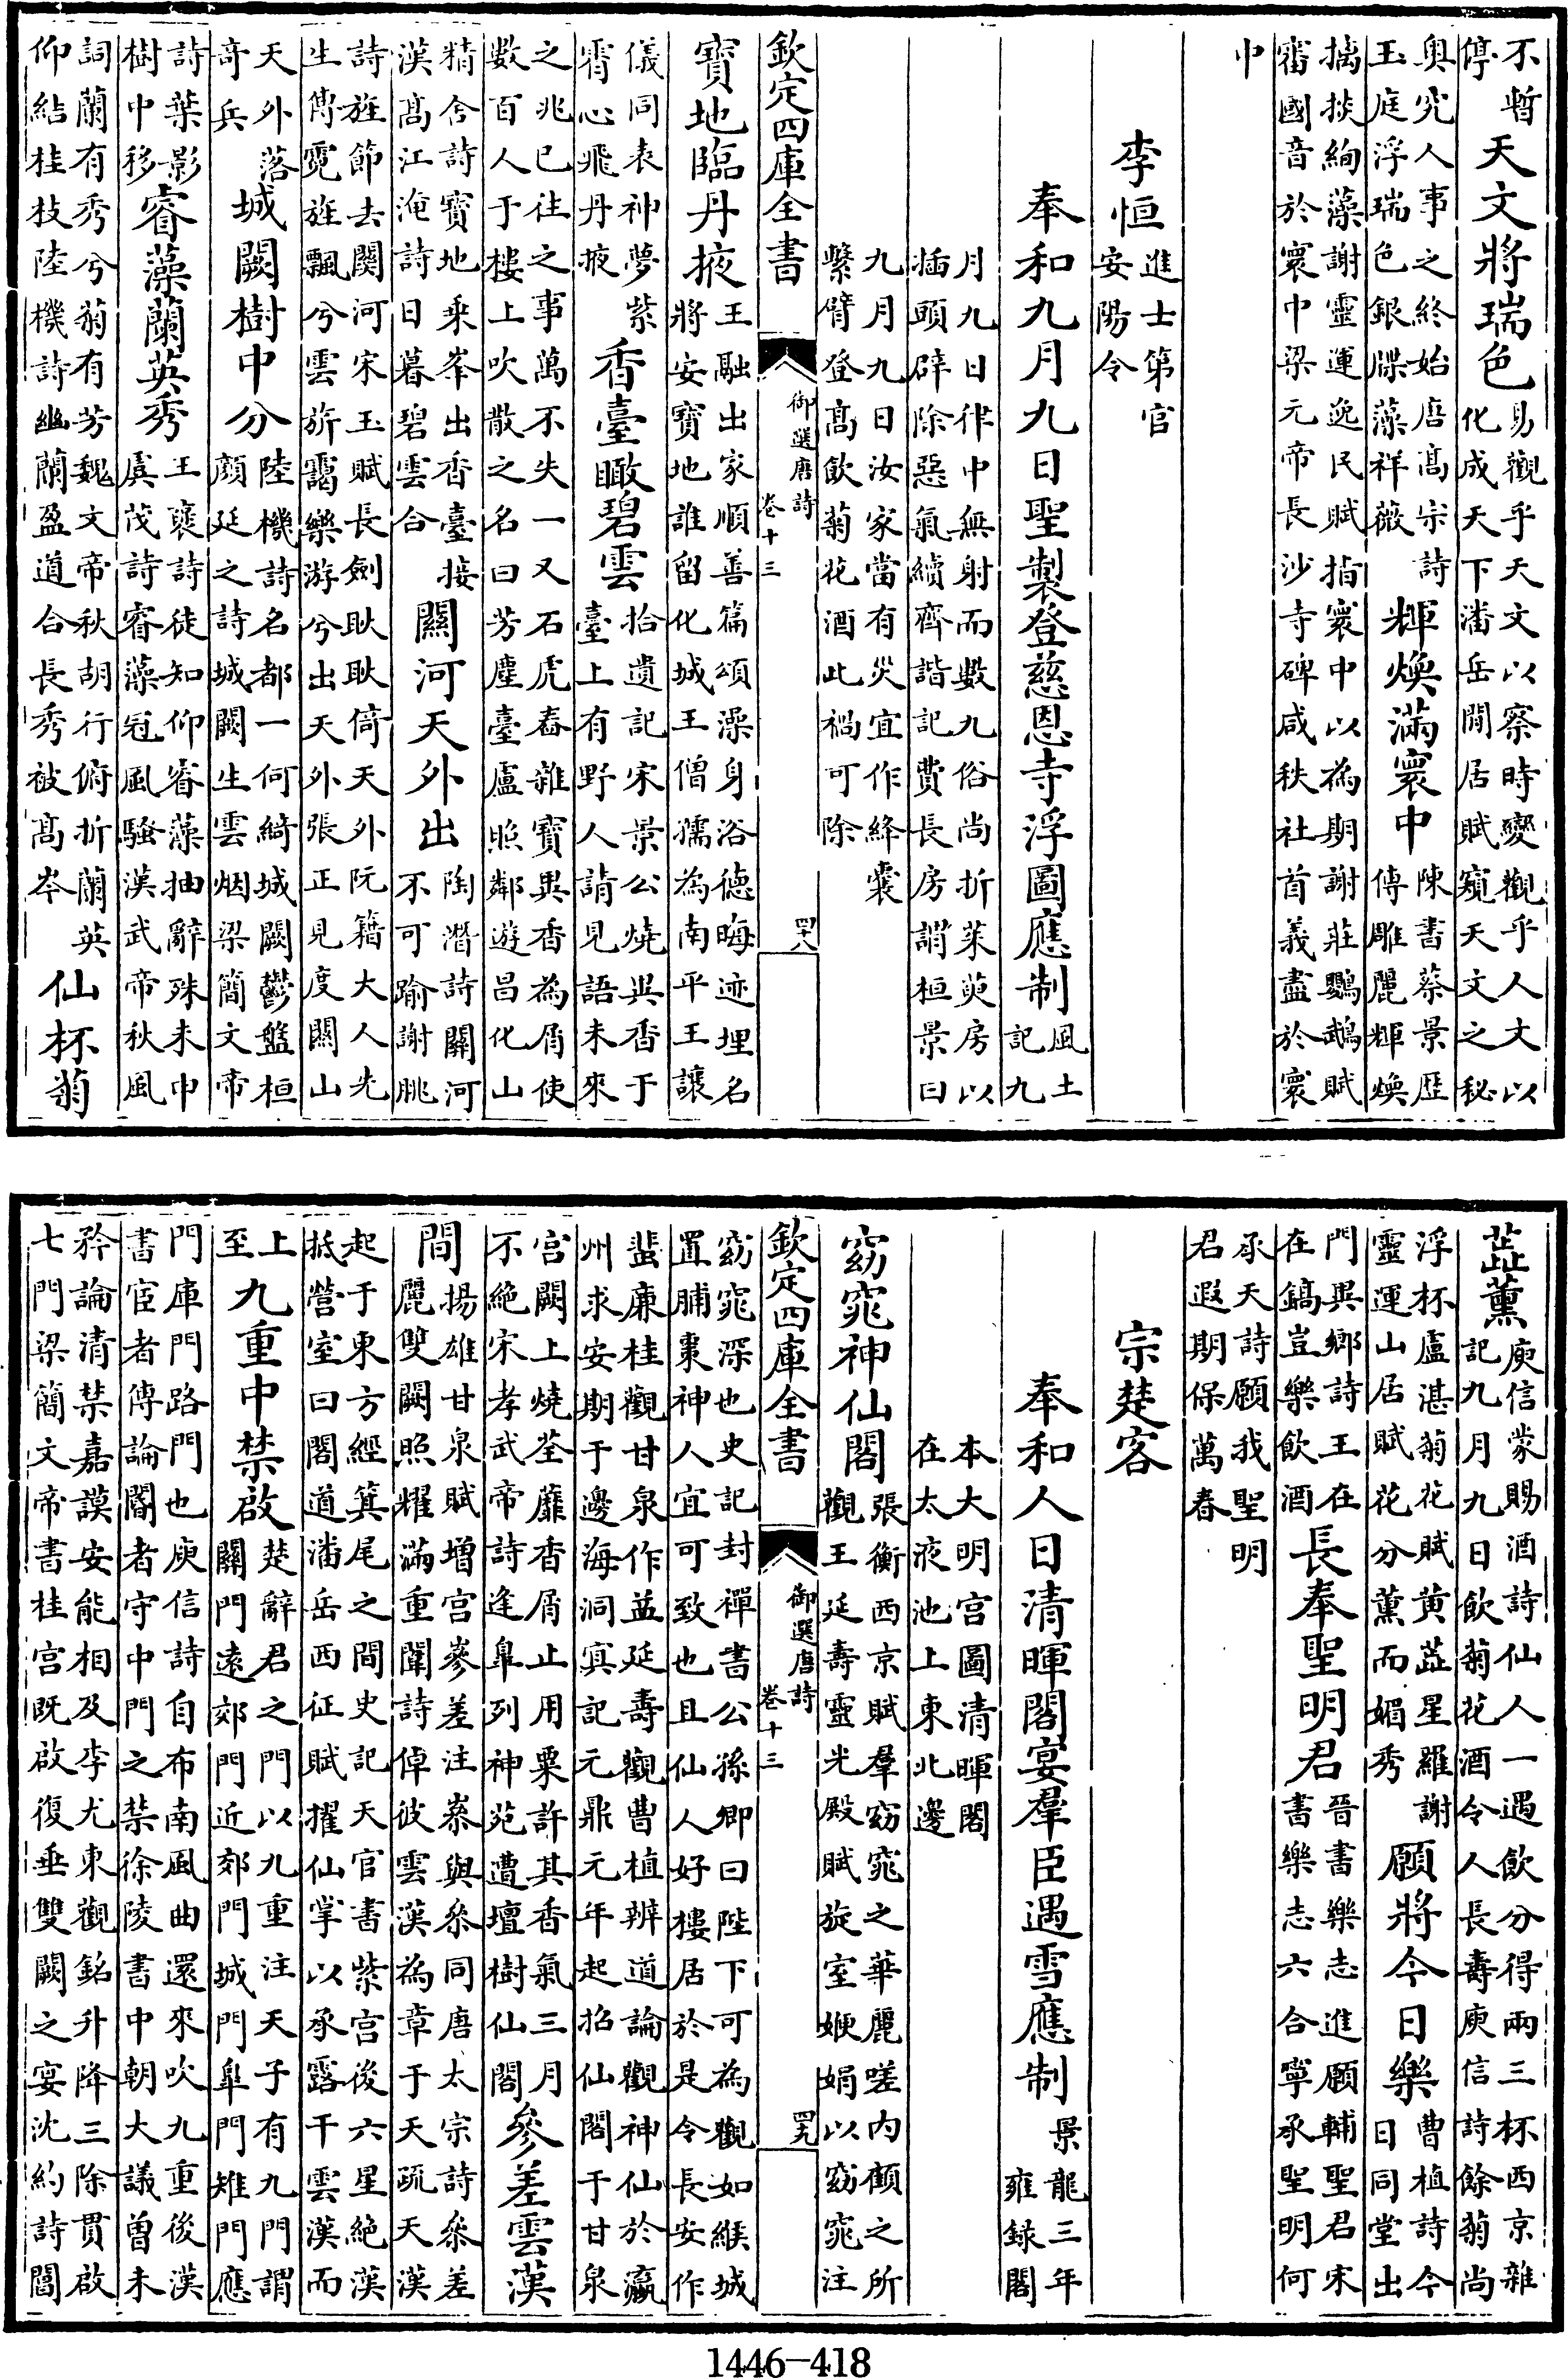 不暫停天文將瑞色易觀乎天文以察時變觀乎人文以化成天下潘岳閒居賦窺天文之秘
奥究人事之終始唐髙宗詩玉庭浮瑞色銀牓藻祥薇輝煥滿寰中陳書蔡景歴傳雕麗輝煥
摛掞絢藻謝靈運逸民賦指寰中以為期謝莊鸚鵡賦審國音於寰中梁元帝長沙寺碑咸秩社首義盡於寰
中
李恒進士第官安陽令
奉和九月九日聖製登慈恩寺浮圖應制風土記九
月九日律中無射而數九俗尚折茱萸房以插頭辟除惡氣續齊諧記費長房謂桓景曰
九月九日汝家當有災宜作絳囊繫臂登髙飲菊花酒此禍可除
欽定四庫全書 御選唐詩 卷十三 四十八
寳地臨丹掖王融出家順善篇頌澡身浴德晦迹埋名將安寳地誰留化城王僧孺為南平王讓
儀同表神夢紫霄心飛丹掖香臺瞰碧雲拾遺記宋景公燒異香于臺上有野人請見語未來
之兆已往之事萬不失一又石虎舂雜寳異香為屑使數百人于樓上吹散之名曰芳塵臺盧照鄰遊昌化山
精舍詩寳地乘峯出香臺接漢髙江淹詩日暮碧雲合關河天外出陶潛詩關河不可踰謝朓
詩旌節去關河宋玉賦長劍耿耿倚天外阮籍大人先生傳霓旌飄兮雲旂靄樂游兮出天外張正見度關山
天外落奇兵城闕樹中分陸機詩名都一何綺城闕鬱盤桓顔延之詩城闕生雲烟梁簡文帝
詩葉影樹中移睿藻蘭英秀王襃詩徒知仰睿藻抽辭殊未中虞茂詩睿藻冠風騷漢武帝秋風
詞蘭有秀兮菊有芳魏文帝秋胡行俯折蘭英仰結桂枝陸機詩幽蘭盈道合長秀被髙岑仙杯菊
蕋薰庾信蒙賜酒詩仙人一遇飲分得兩三杯西京雜記九月九日飲菊花酒令人長壽庾信詩餘菊尚
浮杯盧湛菊花賦黄蕋星羅謝靈運山居賦花分薰而媚秀願將今日樂曹植詩今日同堂出
門異鄉詩王在在鎬豈樂飲酒長奉聖明君晉書樂志進願輔聖君宋書樂志六合寧承聖明何
承天詩願我聖明君遐期保萬春
宗楚客
奉和人日清暉閣宴羣臣遇雪應制景龍三年雍録閣
本大明宫圖清暉閣在太液池上東北邊
窈窕神仙閣張衡西京賦羣窈窕之華麗嗟内顧之所觀王延壽靈光殿賦旋室㛹娟以窈窕注
欽定四庫全書 御選唐詩 卷十三 四十九
窈窕深也史記封禪書公孫卿曰陛下可為觀如緱城置脯棗神人宜可致也且仙人好樓居於是令長安作
蜚廉桂觀甘泉作益延壽觀曹植辨道論觀神仙於瀛州求安期于邊海洞冥記元鼎元年起招仙閣于甘泉
宫闕上燒荃蘼香屑止用粟許其香氣三月不絶宋孝武帝詩逢臯列神苑遭壇樹仙閣參差雲漢
間揚雄甘泉賦增宫㕘差注㕘與叅同唐太宗詩叅差麗雙闕照耀滿重闈詩倬彼雲漢為章于天疏天漢
起于東方經箕尾之間史記天官書紫宫後六星絶漢抵營室曰閣道潘岳西征賦擢仙掌以承露干雲漢而
上至九重中禁啟楚辭君之門以九重注天子有九門謂關門遠郊門近郊門城門臯門雉門應
門庫門路門也庾信詩自布南風曲還來吹九重後漢書宦者傳論閽者守中門之禁徐陵書中朝大議曽未
矜論清禁嘉謨安能相及李尤東觀銘升降三除貫啟七門梁簡文帝書桂宫既啟復垂雙闕之宴沈約詩閶
1446-418